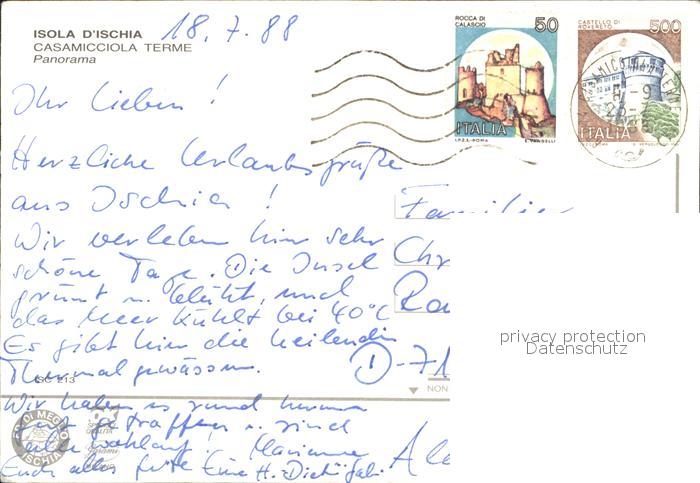 18.7.88
ISOLA D'ISCHIA
CASAMICCIOLA TERME
Panorama
ROCCA DI CALASCIO
50
ITALIA
I.P.Z.S.-ROMA
CASTELLO DI ROVERETO
500
ITALIA
Ihr Lieben!
Herzliche Urlaubsgrüße
aus Ischia!
Wir verleben hier sehr
schöne Tage. Die Insel
grünt u. blüht, und
das Meer kühlt bei 40°C
Es gibt hier die heilenden
Thermalgewässer.
Wir haben es rund herum
gut getroffen u. sind
alle wohlauf! Marianne
Euch alles Gute Eure H.-Dieter
Familie
Chr
Ra
D-71
Ale
privacy protection
Datenschutz
NON
DI MEGLIO
ISCHIA